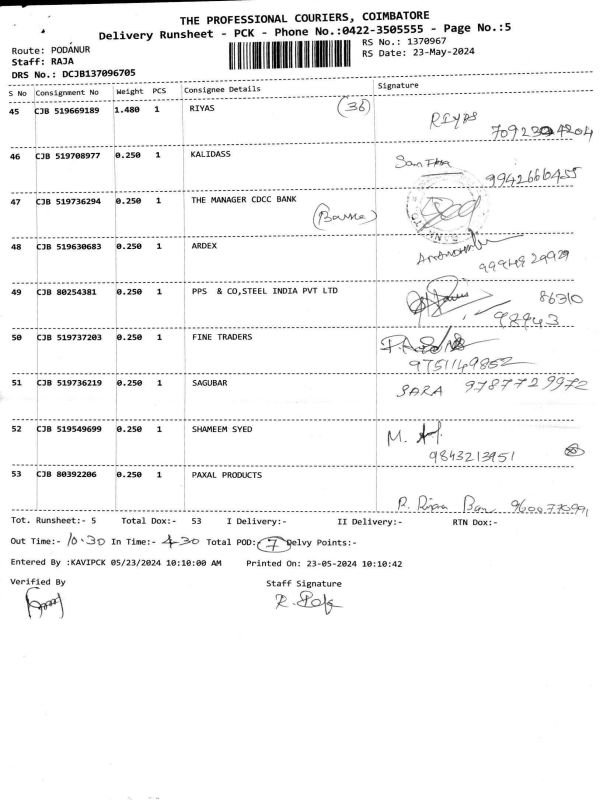 THE PROFESSIONAL COURIERS, COIMBATORE
Delivery Runsheet - PCK - Phone No.:0422-3505555 - Page No.:5
Route: PODANUR
RS No.: 1370967
Staff: RAJA
RS Date: 23-May-2024
DRS No.: DCJB137096705
S No Consignment No Weight PCS Consignee Details Signature
45 CJB 519669189 1.480 1 RIYAS (36) RIYAS
46 CJB 519708977 0.250 1 KALIDASS
9942666455
47 CJB 519736294 0.250 1 THE MANAGER CDCC BANK
48 CJB 519630683 0.250 1 ARDEX
9994929929
49 CJB 80254381 0.250 1 PPS & CO,STEEL INDIA PVT LTD
86310
98943
50 CJB 519737203 0.250 1 FINE TRADERS
9751149852
51 CJB 519736219 0.250 1 SAGUBAR SARA 9787729972
52 CJB 519549699 0.250 1 SHAMEEM SYED M.
9843213951
53 CJB 80392206 0.250 1 PAXAL PRODUCTS
Tot. Runsheet:- 5 Total Dox:- 53 I Delivery:- II Delivery:- RTN Dox:-
Out Time:- 10.30 In Time:- 4.30 Total POD:- 7 Delvy Points:-
Entered By :KAVIPCK 05/23/2024 10:10:00 AM Printed On: 23-05-2024 10:10:42
Verified By Staff Signature